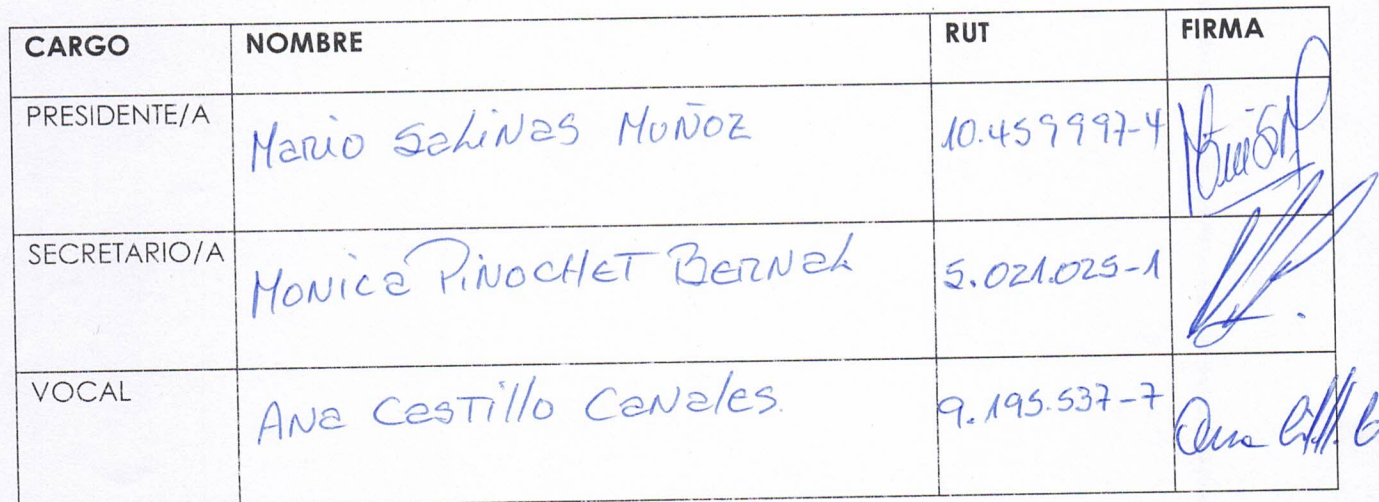 CARGO NOMBRE RUT FIRMA
PRESIDENTE/A Mario Salinas Muñoz 10.459997-4
SECRETARIO/A Monica Pinochet Bernal 5.021.025-1
VOCAL Ana Castillo Canales. 9.195.537-7 Ana